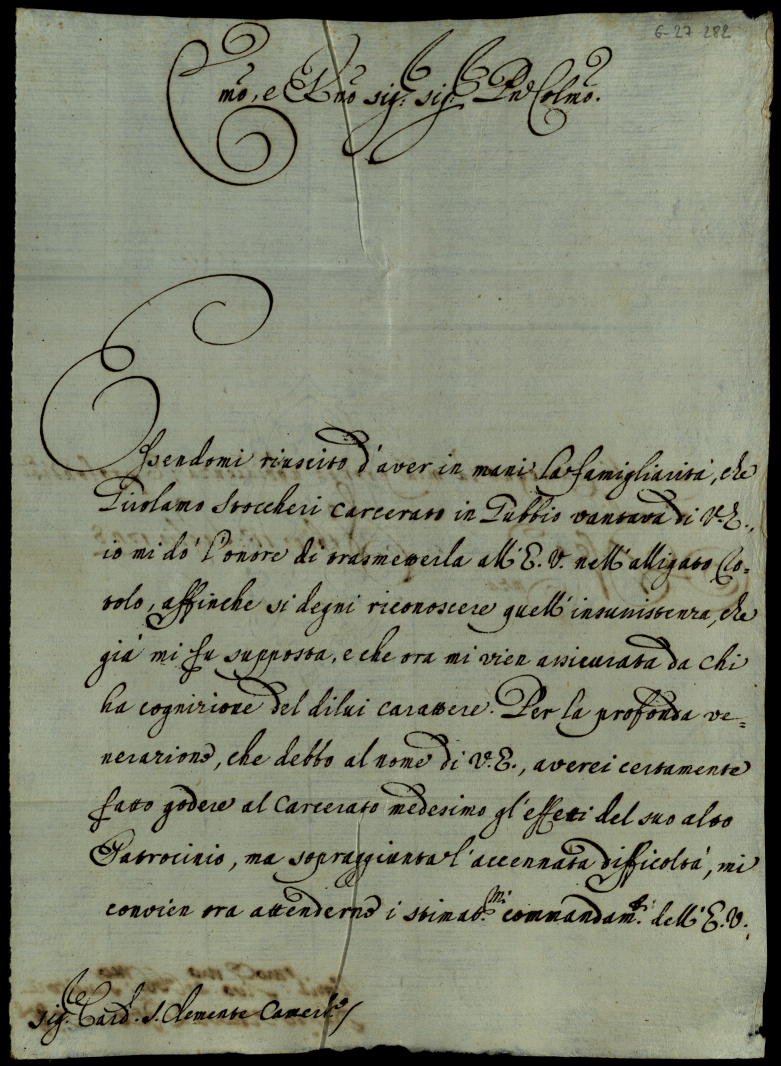 6-27 282
Emo, e Rmo sig.r sig.r Pne Colmo.
Essendomi riuscito d'aver in mani la famigliarità, che
Girolamo Stoccheri carcerato in Gubbio vantava di V. E.,
io mi dò l'onore di trasmetterla all'E. V. nell'alligato Ro-
tolo, affinche si degni riconoscere quell'insussistenza, che
già mi fu supposta, e che ora mi vien assicurata da chi
ha cognizione del di lui carattere. Per la profonda ve=
nerazione, che debbo al nome di V. E., averei certamente
fatto godere al Carcerato medesimo gl'effetti del suo alto
Patrocinio, ma sopraggiunta l'accennata difficoltà, mi
convien ora attenderne i stimat.mi commandam.ti dell'E. V.
sig.r Card. S. Clemente Camerl.o